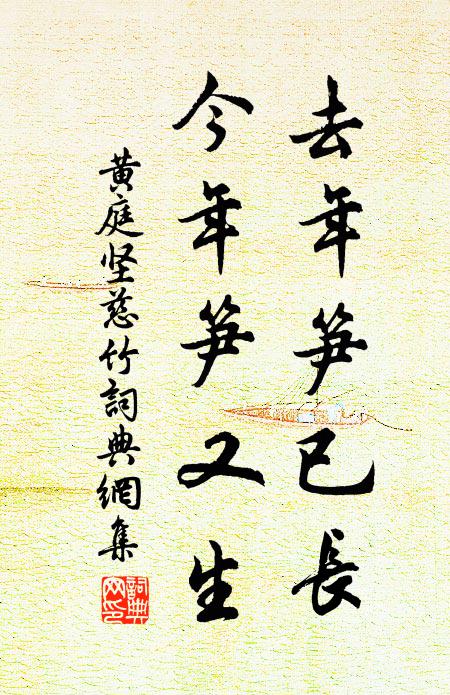 去年笋已長
今年笋又生
黄庭坚慈竹詞典網集
詞典
网印